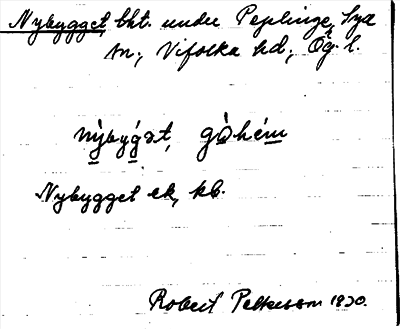 Nybygget bht. under Peplinge, Sya
sn., Vifolka hd., Ög. l.
nỳbýgət, gòhém
Nybygget ek, kb.
Robert Pettersson 1930.